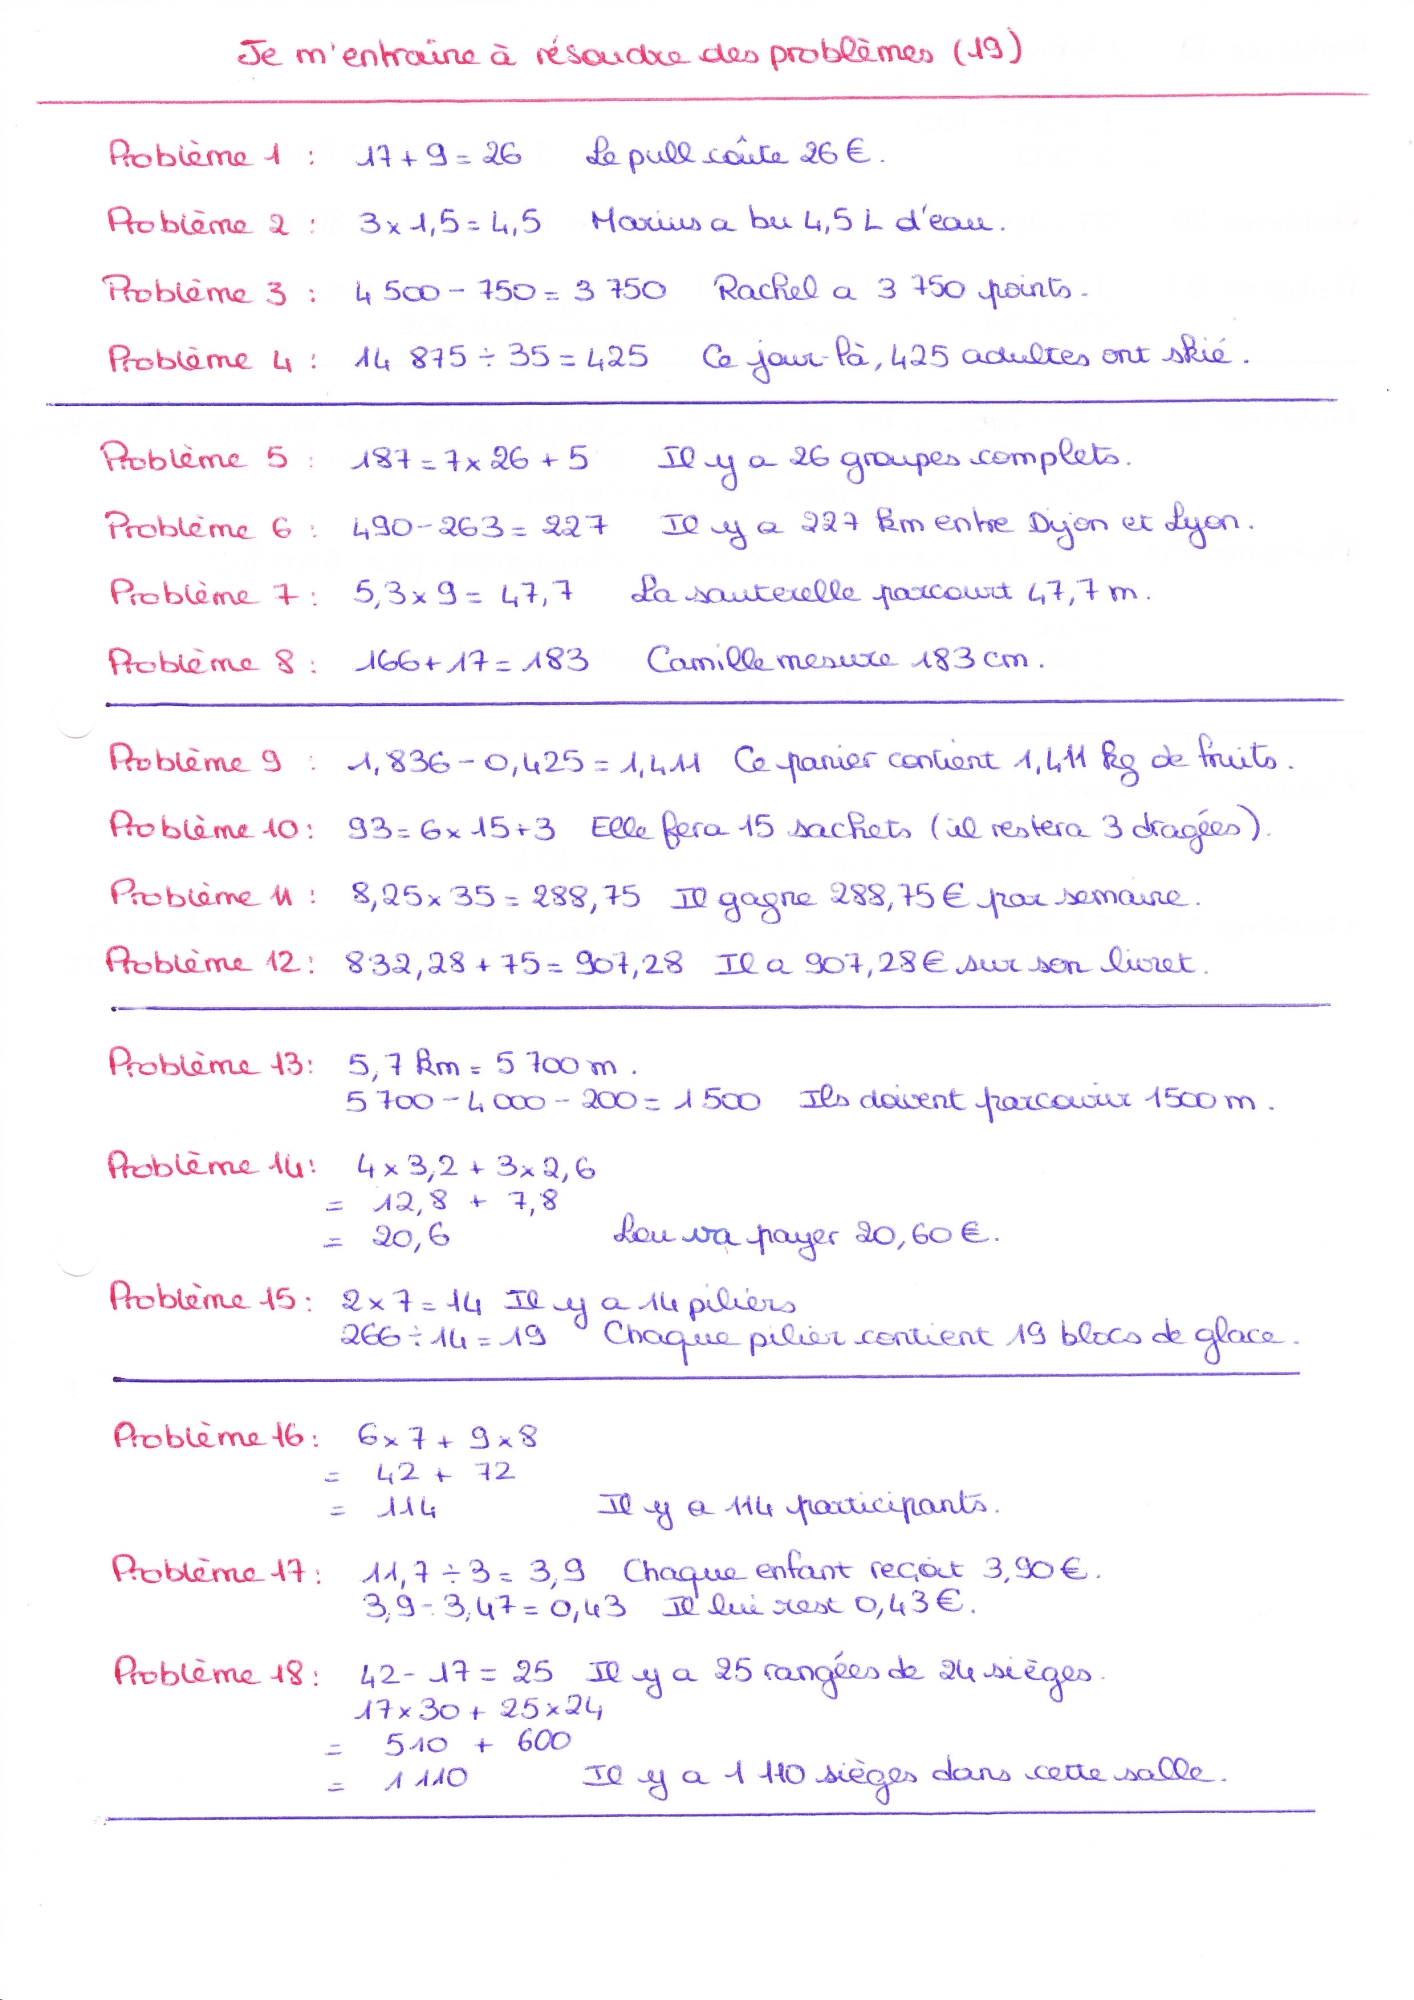 Je m'entraîne à résoudre des problèmes (19)
Problème 1 : 17 + 9 = 26 Le pull coûte 26 €.
Problème 2 : 3 x 1,5 = 4,5 Marius a bu 4,5 L d'eau.
Problème 3 : 4 500 - 750 = 3 750 Rachel a 3 750 points.
Problème 4 : 14 875 ÷ 35 = 425 Ce jour-là, 425 adultes ont skié.
Problème 5 : 187 = 7 x 26 + 5 Il y a 26 groupes complets.
Problème 6 : 490 - 263 = 227 Il y a 227 km entre Dijon et Lyon.
Problème 7 : 5,3 x 9 = 47,7 La sauterelle parcourt 47,7 m.
Problème 8 : 166 + 17 = 183 Camille mesure 183 cm.
Problème 9 : 1,836 - 0,425 = 1,411 Ce panier contient 1,411 kg de fruits.
Problème 10 : 93 = 6 x 15 + 3 Elle fera 15 sachets (il restera 3 dragées).
Problème 11 : 8,25 x 35 = 288,75 Il gagne 288,75 € par semaine.
Problème 12 : 832,28 + 75 = 907,28 Il a 907,28 € sur son livret.
Problème 13 : 5,7 km = 5 700 m.
5 700 - 4 000 - 200 = 1 500 Ils doivent parcourir 1500 m.
Problème 14 : 4 x 3,2 + 3 x 2,6
= 12,8 + 7,8
= 20,6 Lou va payer 20,60 €.
Problème 15 : 2 x 7 = 14 Il y a 14 piliers
266 ÷ 14 = 19 Chaque pilier contient 19 blocs de glace.
Problème 16 : 6 x 7 + 9 x 8
= 42 + 72
= 114 Il y a 114 participants.
Problème 17 : 11,7 ÷ 3 = 3,9 Chaque enfant reçoit 3,90 €.
3,9 - 3,47 = 0,43 Il lui rest 0,43 €.
Problème 18 : 42 - 17 = 25 Il y a 25 rangées de 24 sièges.
17 x 30 + 25 x 24
= 510 + 600
= 1 110 Il y a 1 110 sièges dans cette salle.